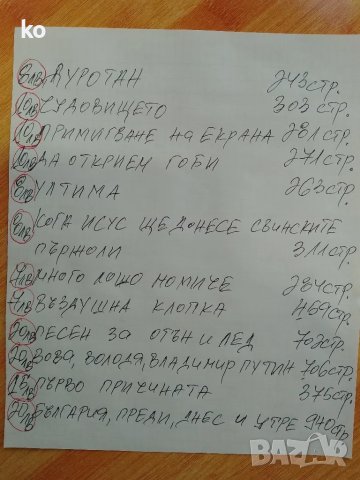 ko
8лв. ДУРОТАН 243стр.
10лв ЧУДОВИЩЕТО 303 стр.
10лв ПРИМИГВАНЕ НА ЕКРАНА 281стр.
10лв ДА ОТКРИЕМ ГОБИ 271стр.
8лв УЛТИМА 263стр.
8лв КОГА ИСУС ЩЕ ДОНЕСЕ СВИНСКИТЕ
ПЪРЖОЛИ 311стр.
7лв МНОГО ЛОШО МОМИЧЕ 284стр.
7лв ВЪЗДУШНА КЛОПКА 469стр.
20лв ПЕСЕН ЗА ОГЪН И ЛЕД 702стр.
20лв ВОВА, ВОЛОДЯ, ВЛАДИМИР ПУТИН 706стр.
15лв ПЪРВО ПРИЧИНАТА 375стр.
20лв БЪЛГАРИЯ, ПРЕДИ, ДНЕС И УТРЕ 940стр.
BAZAR